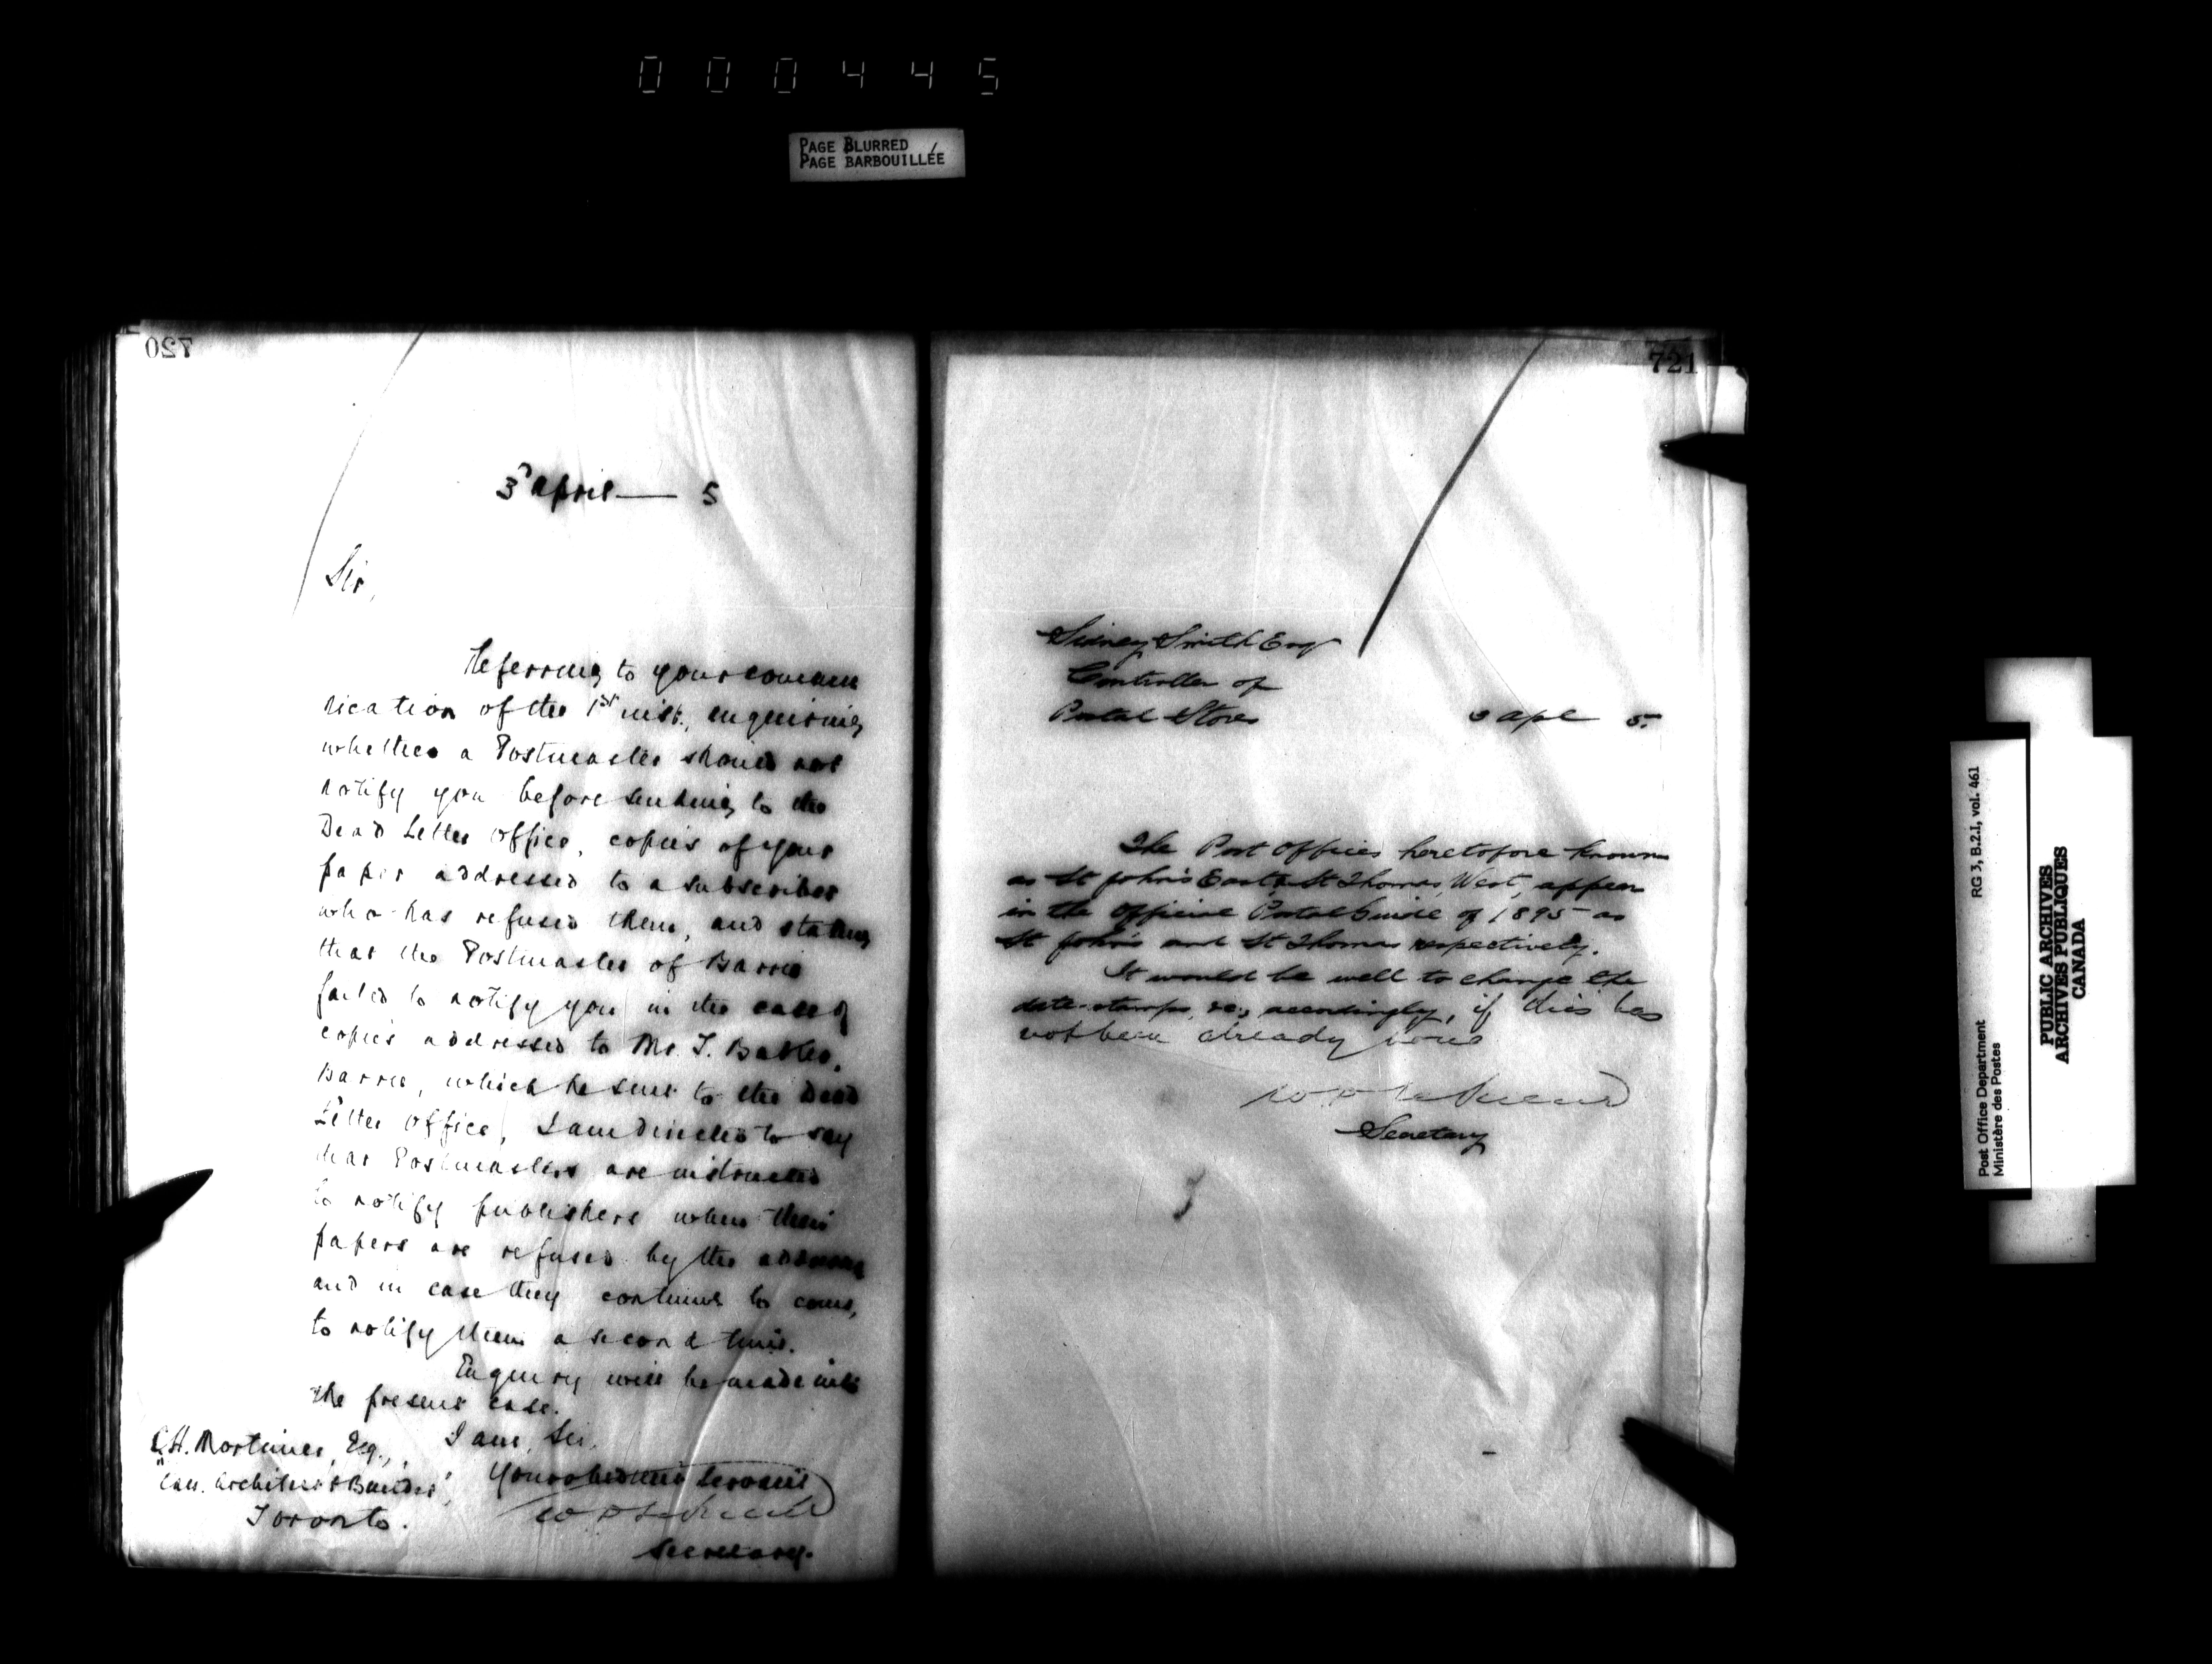 000445
PAGE BLURRED
PAGE BARBOUILLÉE
720
3 April — 5
Sir,
Referring to your commu
nication of the 1st inst., enquiring
whether a Postmaster should not
notify you before sending to the
Dead Letter Office, copies of your
paper addressed to a subscriber
who has refused them, and stating
that the Postmaster of Barrie
failed to notify you in the case of
copies addressed to Mr. T.
Barrie, which he sent to the Dead
Letter Office, I am directed to say
that Postmasters are instructed
to notify publishers when their
papers are refused by the
and in case they continue to come,
to notify them a second time.
Enquiry will be made into
the present case.
I am, Sir,
Your obedient Servant
Secretary.
C.H. Mortimer, Esq.,
"Can. Architect & Builder",
Toronto.
721
Sidney Smith Esqr
Controller of
Postal Stores
3 Apl 5.
The Post Offices heretofore known
as St John's East & St Thomas, West, appear
in the Official Postal Guide of 1895 as
St John's and St Thomas respectively.
It would be well to change the
date-stamps, &c, accordingly, if this has
not been already done
Secretary
Post Office Department
Ministère des Postes
RG 3, B.2.I, vol. 461
PUBLIC ARCHIVES
ARCHIVES PUBLIQUES
CANADA